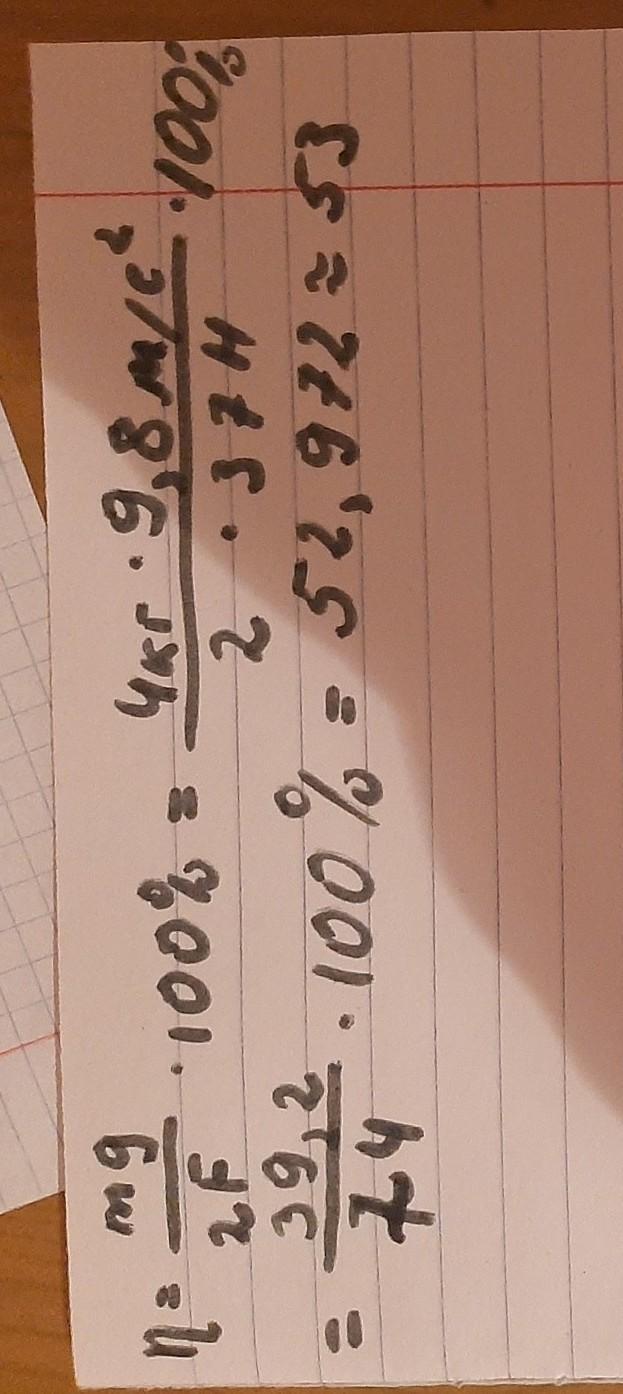 η = mg/2F · 100% = 4кг · 9,8 м/с²/2 · 37 Н · 100%
= 39,2/74 · 100% = 52,972 ≈ 53